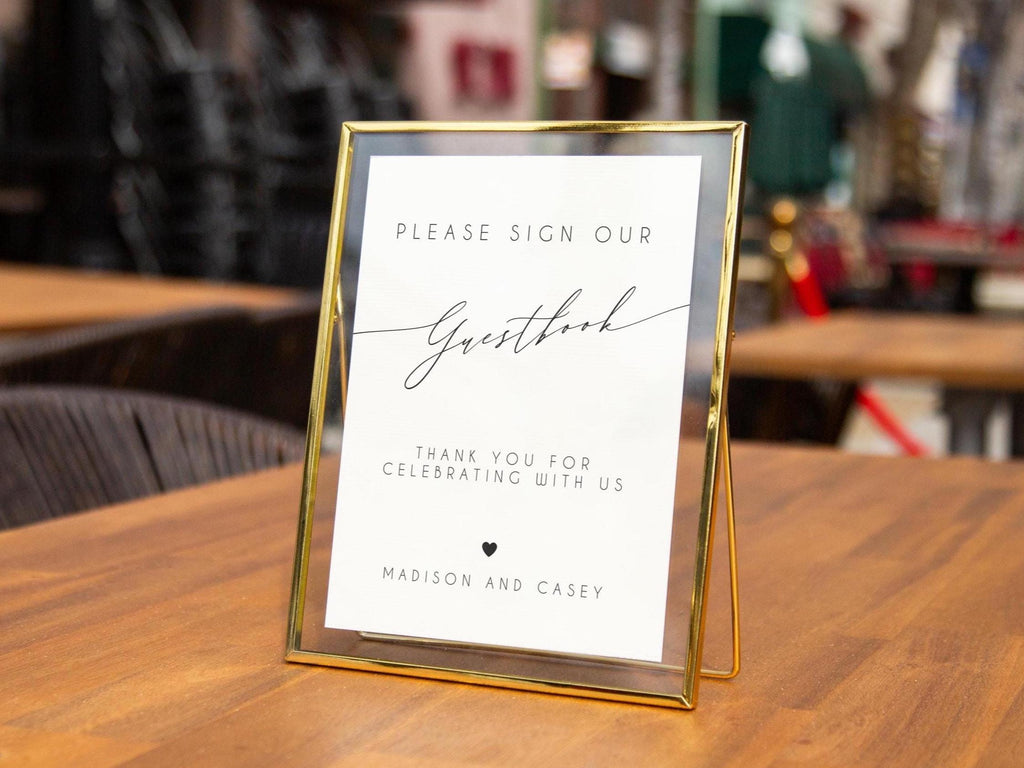 PLEASE SIGN OUR
Guestbook
THANK YOU FOR
CELEBRATING WITH US
MADISON AND CASEY